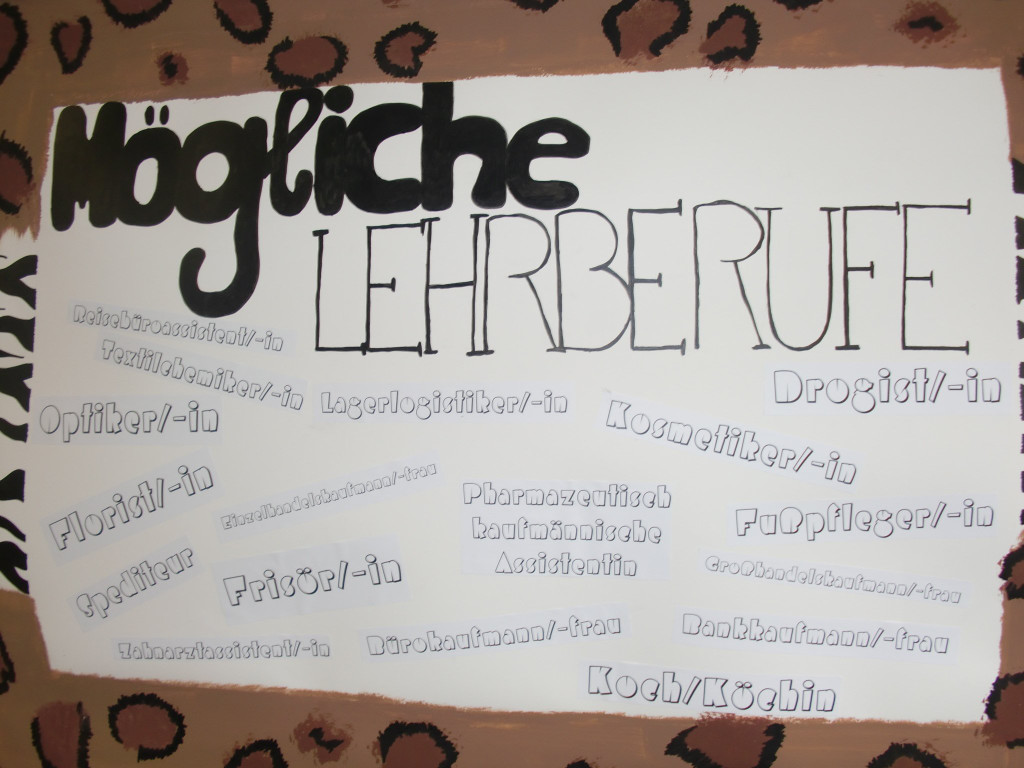 Mögliche
LEHRBERUFE
Reisebüroassistent/-in
Textilchemiker/-in
Optiker/-in
Lagerlogistiker/-in
Kosmetiker/-in
Drogist/-in
Florist/-in
Einzelhandelskaufmann/-frau
Pharmazeutisch
kaufmännische
Assistentin
Fußpfleger/-in
Spediteur
Frisör/-in
Großhandelskaufmann/-frau
Zahnarztassistent/-in
Bürokaufmann/-frau
Bankkaufmann/-frau
Koch/Köchin